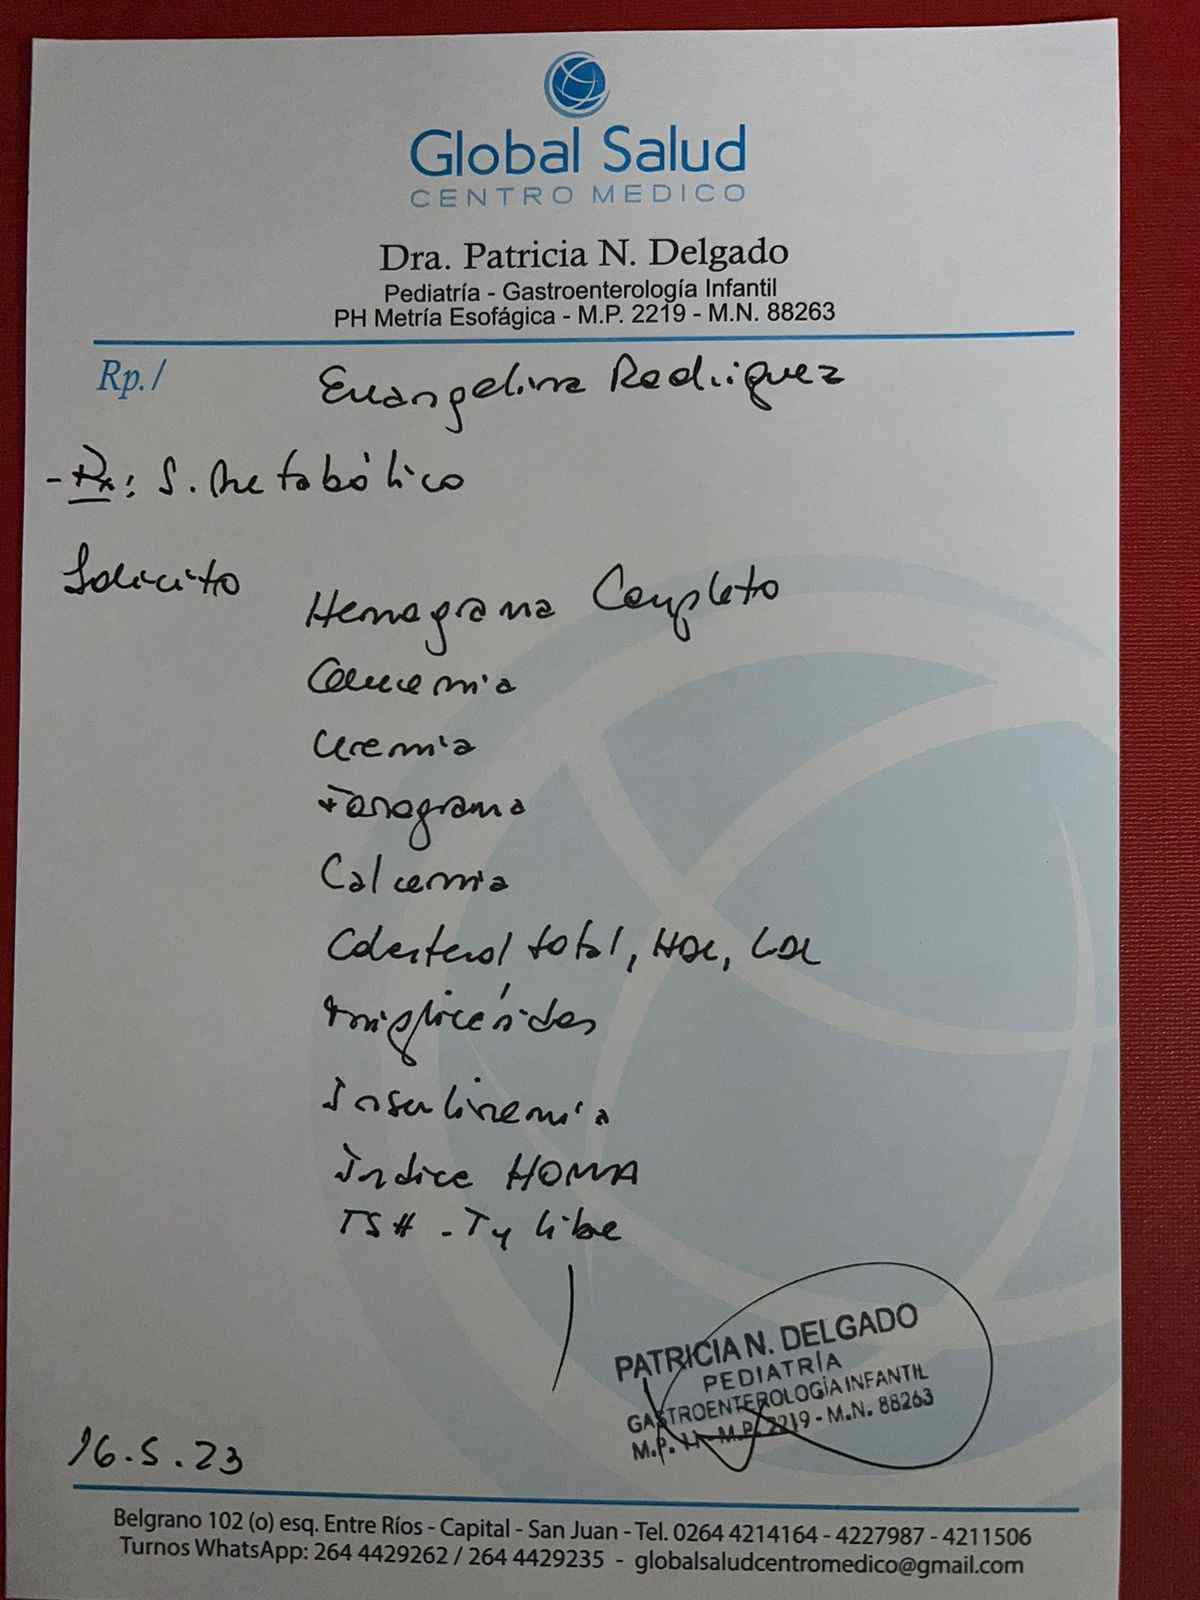 Global Salud
CENTRO MEDICO
Dra. Patricia N. Delgado
Pediatría - Gastroenterología Infantil
PH Metría Esofágica - M.P. 2219 - M.N. 88263
Rp./
Evangelina Rodriguez
- Dx: S. Metabólico
Solicito
Hemograma Completo
Glucemia
Uremia
Ionograma
Calcemia
Colesterol total, HDL, LDL
Triglicéridos
Insulinemia
Indice HOMA
TSH - T4 libre
PATRICIA N. DELGADO
PEDIATRÍA
GASTROENTEROLOGÍA INFANTIL
M.P. 2219 - M.N. 88263
16.5.23
Belgrano 102 (o) esq. Entre Ríos - Capital - San Juan - Tel. 0264 4214164 - 4227987 - 4211506
Turnos WhatsApp: 264 4429262 / 264 4429235 - globalsaludcentromedico@gmail.com